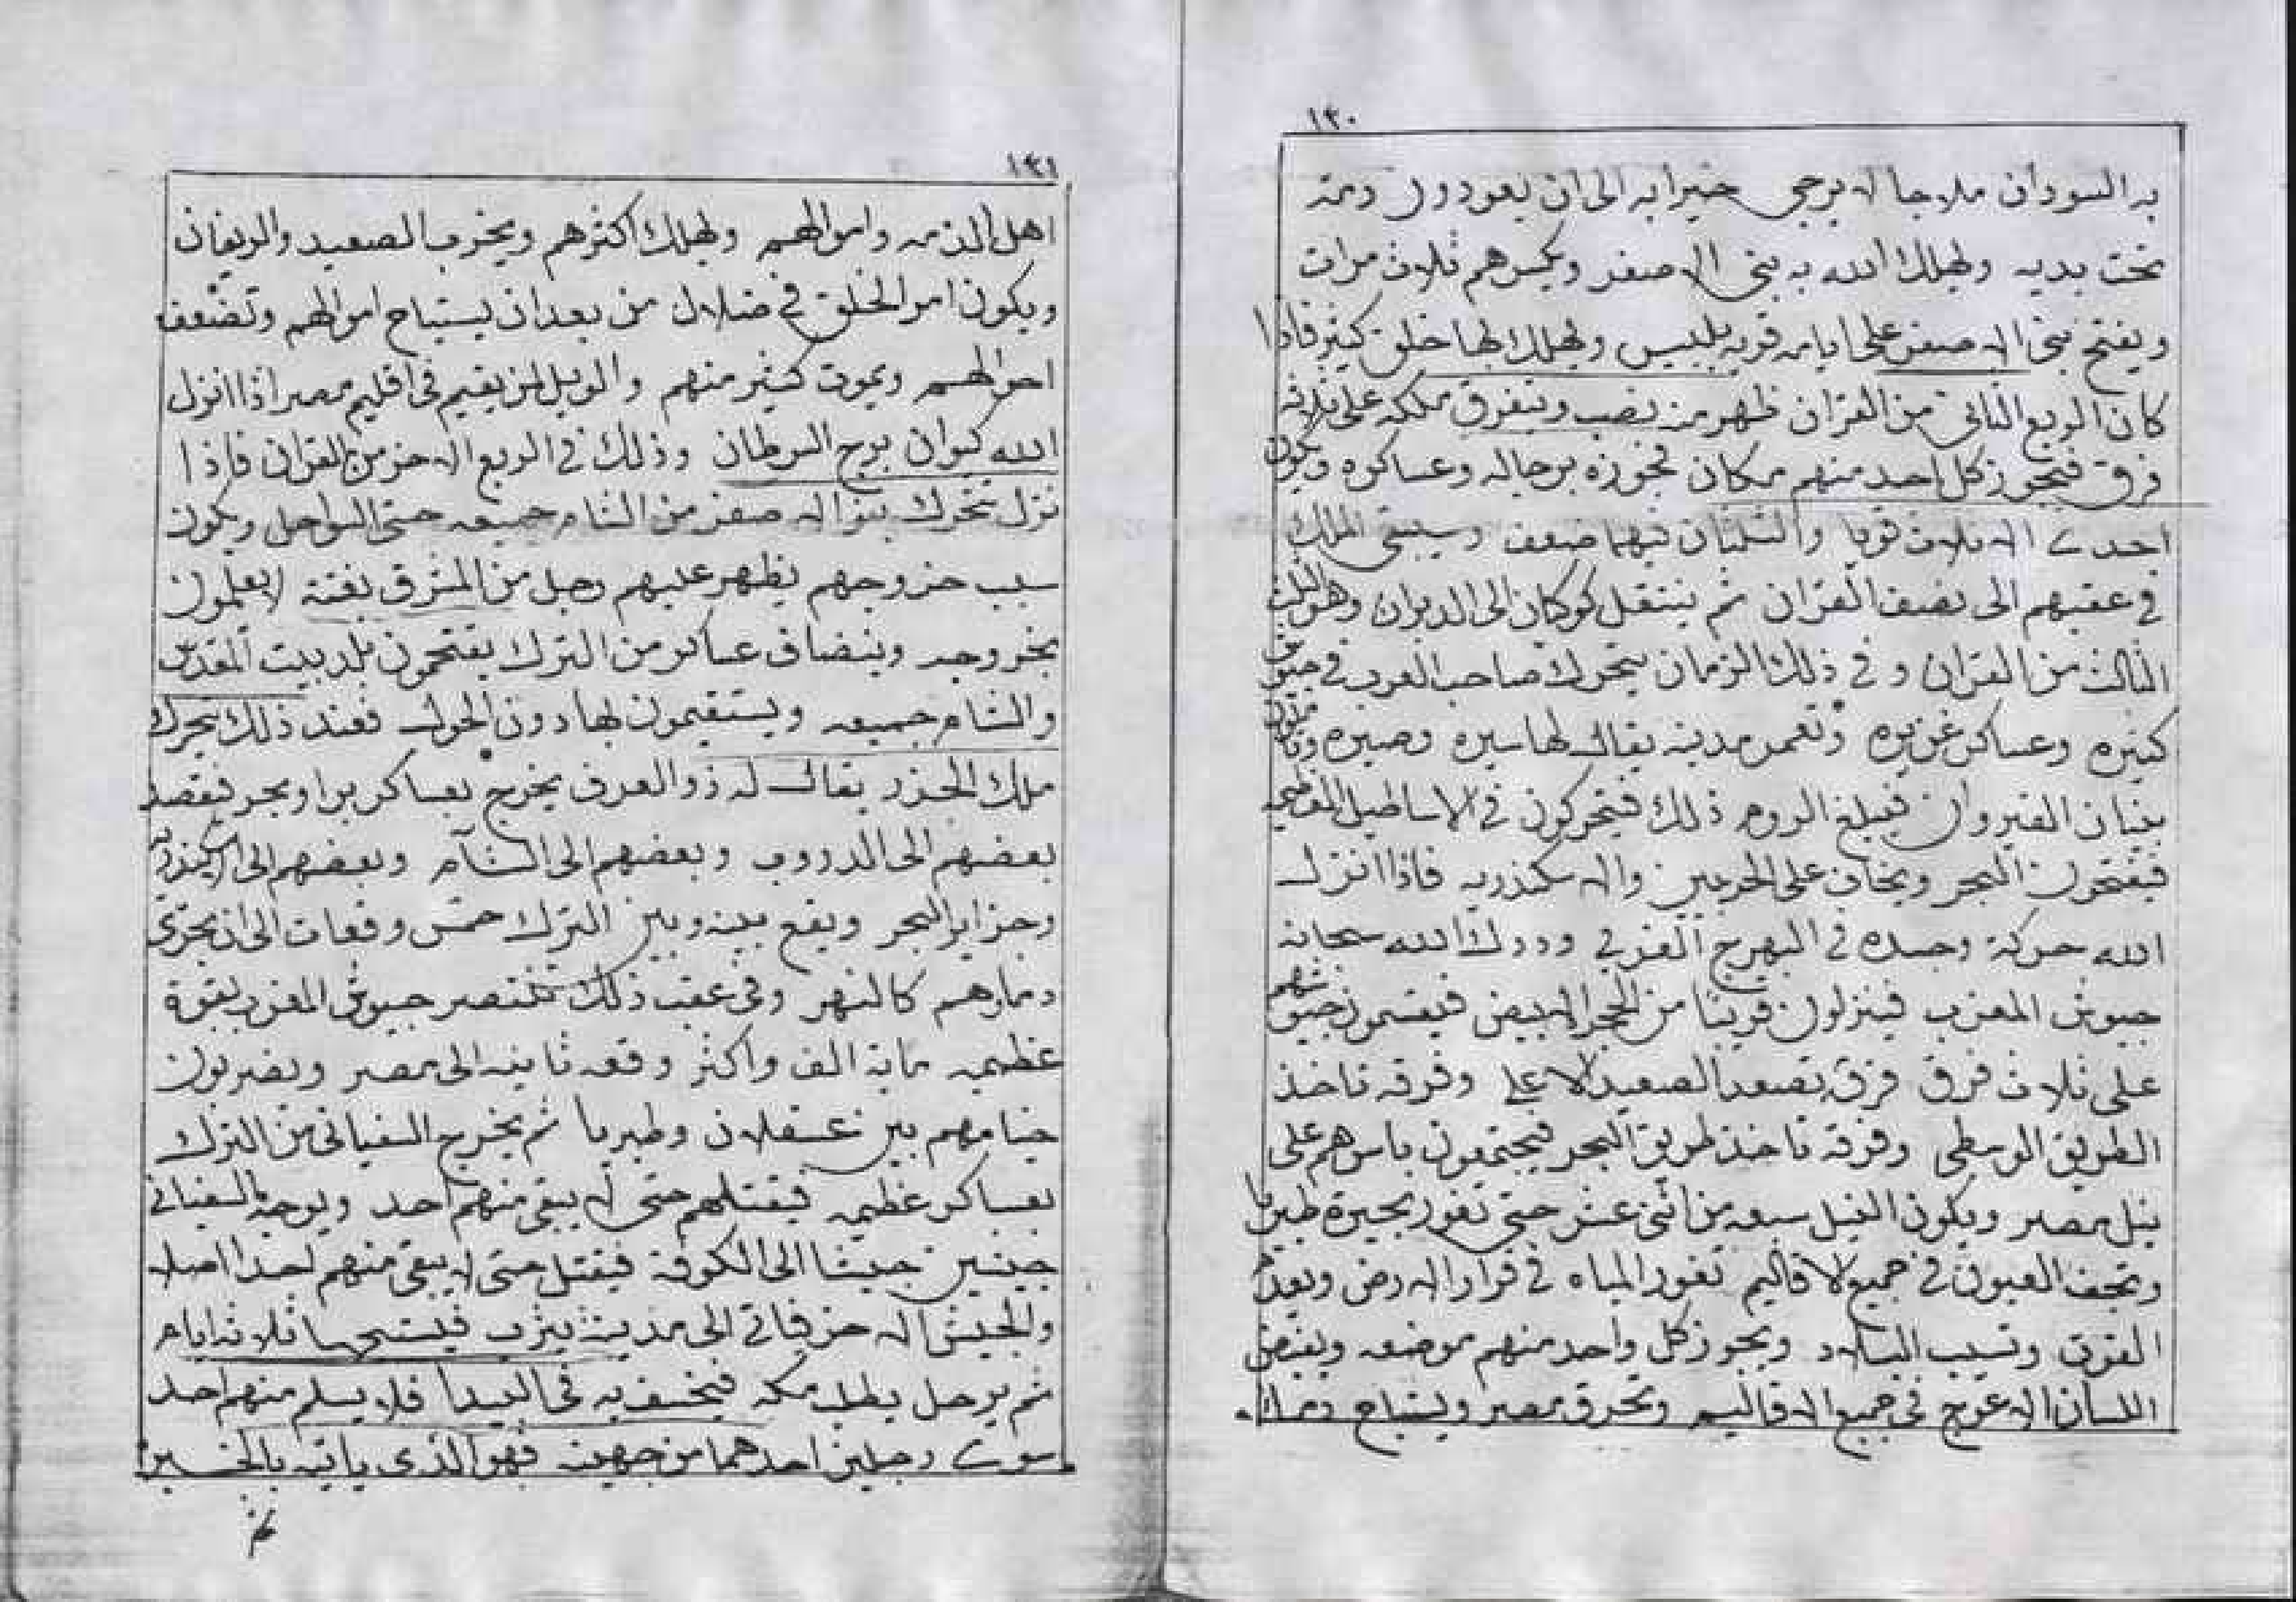 ١٣٠
به السودان ملاجا لا يرجى خيرا به الى ان يعودون
تحت يديه ويهلك الله به بنى الاصفر ويكسرهم ثلاث مرات
ويفتح بنى الاصفر على ايامه قريه بلبيس ويهلك بها خلق كثير فاذا
كان الربع الثانى من القران ظهر من نصب ويتفرق مملكه على ثلاثه
فرق فيتجوز كل احد منهم بمكان يجوزه برجاله وعساكره ويكون
احدى الثلاث قويا والثلثان فيهما ضعف وسيبقى الملك
فى عقبهم الى نصف القران ثم ينتقل كوكان الى الدبران وهو الثلث
الثالث من القران و فى ذلك الزمان يتحرك صاحب الغرب فى جيوش
كثيره وعساكر غزيره وتعمر مدينه يقال لها سيره وصبره
بنيان القيروان فيبلغ الروم ذلك فيتحركون فى الاساطيل العظيمه
فيفتحون البحر ويخاف على الحربين والاسكندريه فاذا انزل
الله حركة وحده فى البهرج الغربى ودرك الله سبحانه
جيوش المغرب فينزلون قريبا من الحجر الابيض فيقسمون جيوشهم
على ثلاث فرق فرقه تصعد الصعيد الاعلى وفرقه تاخذ
الطريق الوسطى وفرقه تاخذ طريق البحر فيجتمعون باسرهم على
نيل مصر ويكون النيل سبعه من اثنى عشر حتى تغور بحيرة طبريا
وتجف العيون فى جميع الاقاليم تغور المياه فى قرار الارض ويعدم
القوت وتسيب البلاد ويحوز كل واحد منهم موضعه ويقبض
اللسان الاعوج فى جميع الاقاليم وتحرق مصر ويستباح دما
١٣١
اهل الذمه واموالهم ويهلك اكثرهم ويخرب الصعيد والريفان
ويكون امر الخلق فى ضلال من بعد ان يستباح اموالهم وتضعف
احوالهم ويموت كثير منهم والويل لمن يقيم فى اقليم مصر اذا انزل
الله كيوان برج السرطان وذلك فى الربع الاخر من القران فاذا
نزل تحرك بنو الاصفر من الشام جميعه حتى السواحل ويكون
سبب خروجهم يظهر عليهم رجل من المشرق بغتة لا يعلمون
بخروجه وينضاف عساكر من الترك يفتحون بلد بيت المقدس
والشام جميعه ويستقيمون بها دون الحول فعند ذلك يتحرك
ملك الجزر يقال له ذو العرف يخرج بعساكر برا وبحر فيقصد
بعضهم الى الدروب وبعضهم الى الشام وبعضهم الى اسكندريه
وجزاير البحر ويقع بينه وبين الترك خمس وقعات الى ان يجرى
دماوهم كالنهر وفى عقب ذلك تنتصر جيوش المغرب بقوة
عظيمه مايه الف واكثر وقعه ثانيه الى مصر ويضربون
خيامهم بين عسقلان وطبريا ثم يخرج السفيانى من الترك
بعساكر عظيمه فيقتلهم حتى لا يبقى منهم احد ويوجه السفيانى
جيشين جيشا الى الكوفه فيقتل حتى لا يبقى منهم احدا اصلا
والجيش الاخر فياتى الى مدينة يثرب فيستبيحها ثلاثه ايام
ثم يرحل يطلب مكه فيخسف به فى البيدا فلا يسلم منهم احد
سوى رجلين احدهما من جهينه فهو الذى ياتيه بالخبر